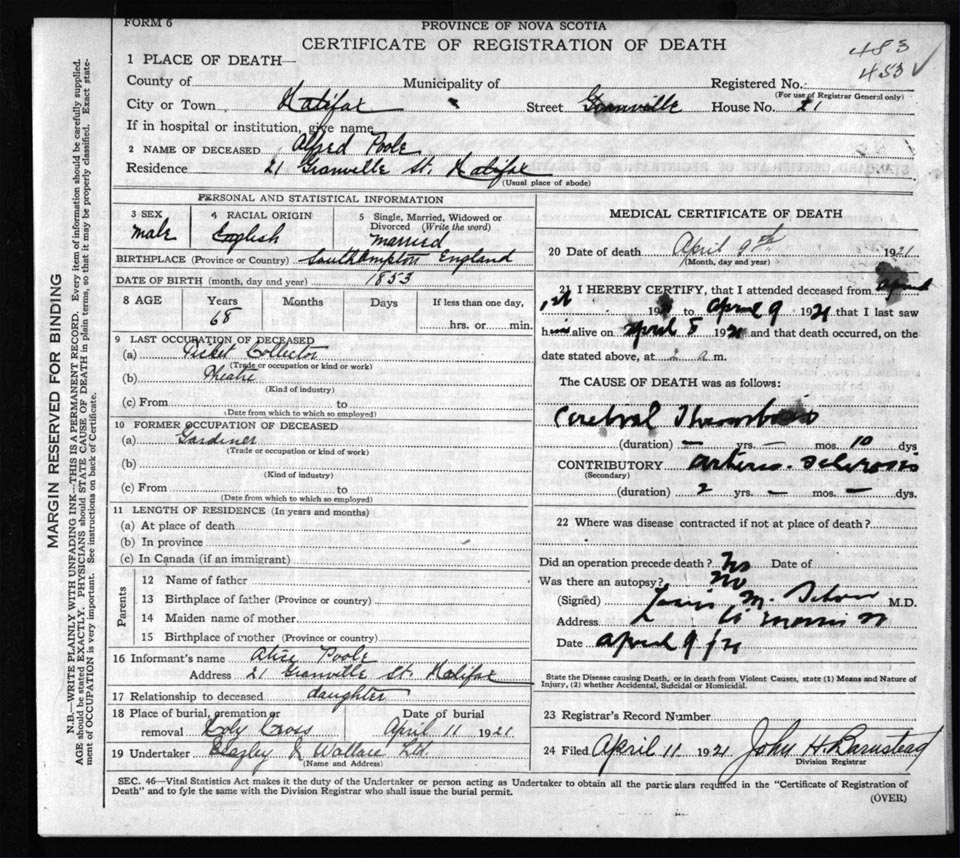 FORM 6
PROVINCE OF NOVA SCOTIA
CERTIFICATE OF REGISTRATION OF DEATH
483
453 ✓
1 PLACE OF DEATH—
County of Municipality of Registered No.
(For use of Registrar General only)
City or Town Halifax Street Granville House No. 21
If in hospital or institution, give name
2 NAME OF DECEASED Alfred Poole
Residence 21 Granville St. Halifax
(Usual place of abode)
PERSONAL AND STATISTICAL INFORMATION
3 SEX 4 RACIAL ORIGIN 5 Single, Married, Widowed or Divorced (Write the word)
male English married
BIRTHPLACE (Province or Country) Southampton England
DATE OF BIRTH (month, day and year) 1853
8 AGE Years Months Days If less than one day,
68 hrs. or min.
9 LAST OCCUPATION OF DECEASED
(a) Ticket Collector
(Trade or occupation or kind or work)
(b) Theatre
(Kind of industry)
(c) From to
(Date from which to which so employed)
10 FORMER OCCUPATION OF DECEASED
(a) Gardiner
(Trade or occupation or kind of work)
(b)
(Kind of industry)
(c) From to
(Date from which to which so employed)
11 LENGTH OF RESIDENCE (In years and months)
(a) At place of death
(b) In province
(c) In Canada (if an immigrant)
Parents
12 Name of father
13 Birthplace of father (Province or country)
14 Maiden name of mother
15 Birthplace of mother (Province or country)
16 Informant's name Alice Poole
Address 21 Granville St. Halifax
17 Relationship to deceased daughter
18 Place of burial, cremation or removal Holy Cross Date of burial April 11 1921
19 Undertaker Beazley & Wallace Ltd.
(Name and Address)
MEDICAL CERTIFICATE OF DEATH
20 Date of death April 9th 1921
(Month, day and year)
21 I HEREBY CERTIFY, that I attended deceased from April
1st 19 to April 9 1921 that I last saw
him alive on April 8 1921 and that death occurred, on the
date stated above, at 2 a m.
The CAUSE OF DEATH was as follows:
Cerebral Thrombosis
(duration) — yrs. — mos. 10 dys
CONTRIBUTORY arterio-sclerosis
(Secondary)
(duration) 2 yrs. — mos. — dys.
22 Where was disease contracted if not at place of death?
Did an operation precede death? No Date of
Was there an autopsy? No
(Signed) Louis M. Silver M.D.
Address
Date April 9/21
State the Disease causing Death, or in death from Violent Causes, state (1) Means and Nature of
Injury, (2) whether Accidental, Suicidal or Homicidal.
23 Registrar's Record Number
24 Filed April 11 1921 John H. Barnstead
Division Registrar
SEC. 46—Vital Statistics Act makes it the duty of the Undertaker or person acting as Undertaker to obtain all the particulars required in the "Certificate of Registration of
Death" and to fyle the same with the Division Registrar who shall issue the burial permit.
(OVER)
MARGIN RESERVED FOR BINDING
N.B.—WRITE PLAINLY WITH UNFADING INK—THIS IS A PERMANENT RECORD. Every item of information should be carefully supplied.
AGE should be stated EXACTLY. PHYSICIANS should STATE CAUSE OF DEATH in plain terms, so that it may be properly classified. Exact state-
ment of OCCUPATION is very important. See instructions on back of Certificate.